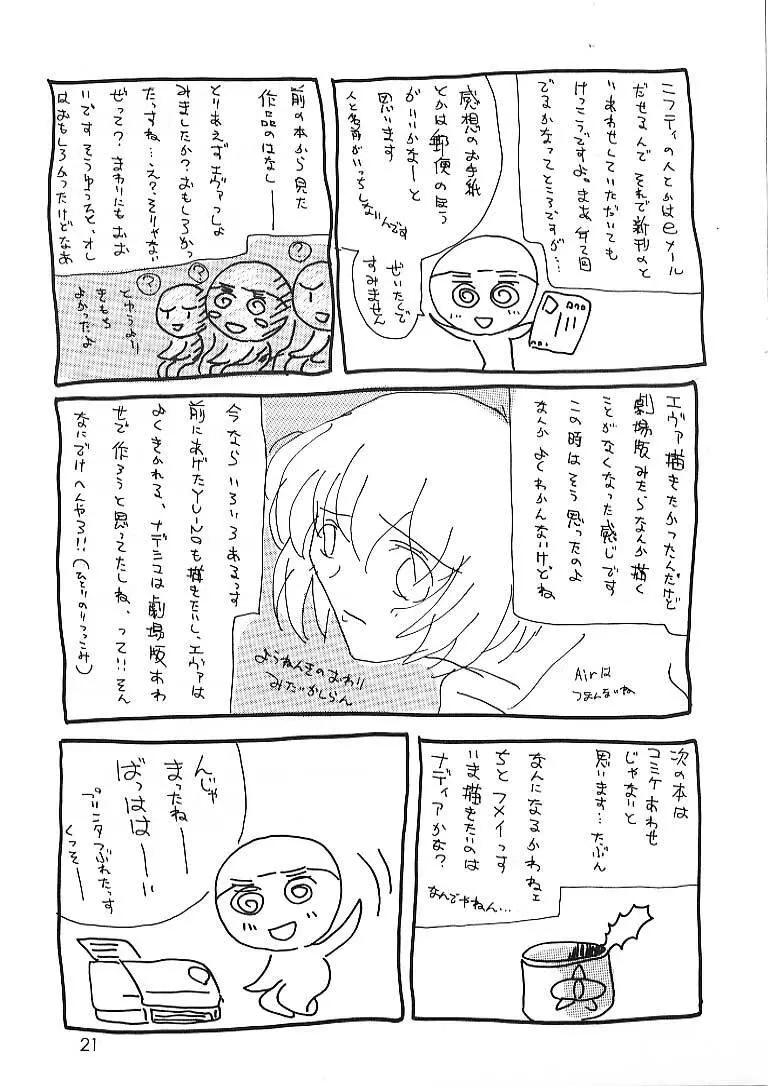 ニフティの人とかはeメール
だせるんで それで新刊のと
いあわせしていただいても
けっこうですよ。まあ 今回
でるかなってところですが…
感想のお手紙
とかは郵便のほう
がいいかなーと
思います
人と名前がいっちしないんです
ぜいたくで
すみません
前の本から見た
作品のはなし——
とりあえずエヴァっしょ
みましたか？おもしろかっ
たっすね…え？そりゃない
ぜって？まわりにもおお
いです そうゆうひと、オレ
はおもしろかったけどなあ
とゆうより
きもち
よかったよ
?
?
?
エヴァ描きたかったんだけど
劇場版みたらなんか描く
ことがなくなった感じです
この時はそう思ったのよ
なんか よくわかんないけどね
Airは
今ならいろいろあるっす
前にあげたYU-NOも描きたいし、エヴァは
よくきかれる、ナデシコは劇場版あわ
せで作ろうと思ってたしね、って!! そん
なにでけへんやろ!!（ひとりのりつっこみ）
ようねんきのおわり
みたいかしらん
次の本は
コミケあわせ
じゃないと
思います…たぶん
なんになるかわねェ
ちとフメイっす
いま描きたいのは
ナディアかな？
なんでやねん…
んじゃ
まったねー
ばっはは——い
プリンタつぶれたっす
くっそ——
21